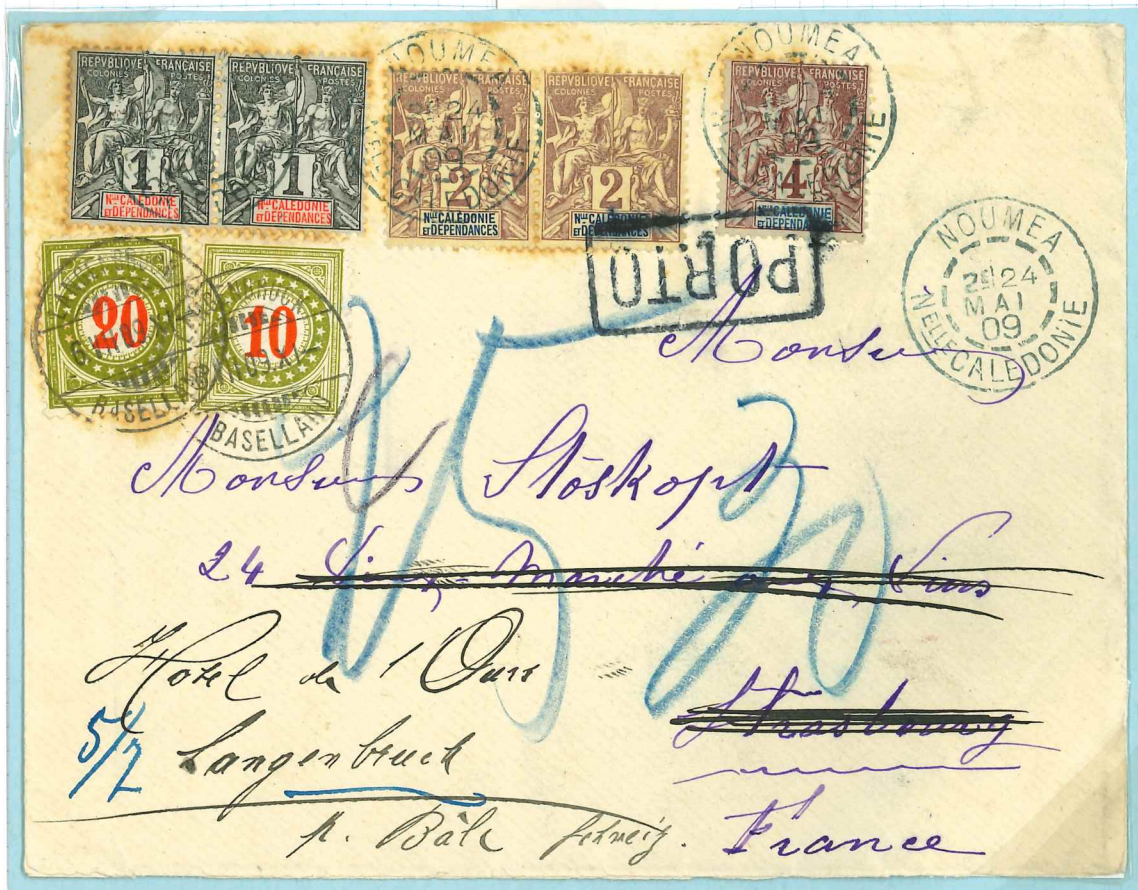 REPVBLIQVE FRANÇAISE
COLONIES POSTES
1
Nlle CALÉDONIE
ET DÉPENDANCES
REPVBLIQVE FRANÇAISE
COLONIES POSTES
1
Nlle CALÉDONIE
ET DÉPENDANCES
REPVBLIQVE FRANÇAISE
COLONIES POSTES
2
Nlle CALÉDONIE
ET DÉPENDANCES
REPVBLIQVE FRANÇAISE
COLONIES POSTES
2
Nlle CALÉDONIE
ET DÉPENDANCES
REPVBLIQVE FRANÇAISE
COLONIES POSTES
4
Nlle CALÉDONIE
ET DÉPENDANCES
NOUMEA
24
MAI
09
NOUMEA
MAI
NOUMEA
2E 24
MAI
09
NELLE CALEDONIE
PORTO
20
10
BASELLAND
BASELLAND
15
30
Monsieur
Monsieur Stöskopf
24 Vieux Marché aux Vins
Strasbourg
France
Hotel de l'Ours
Langenbruck
p. Bâle Schweiz.
5/7